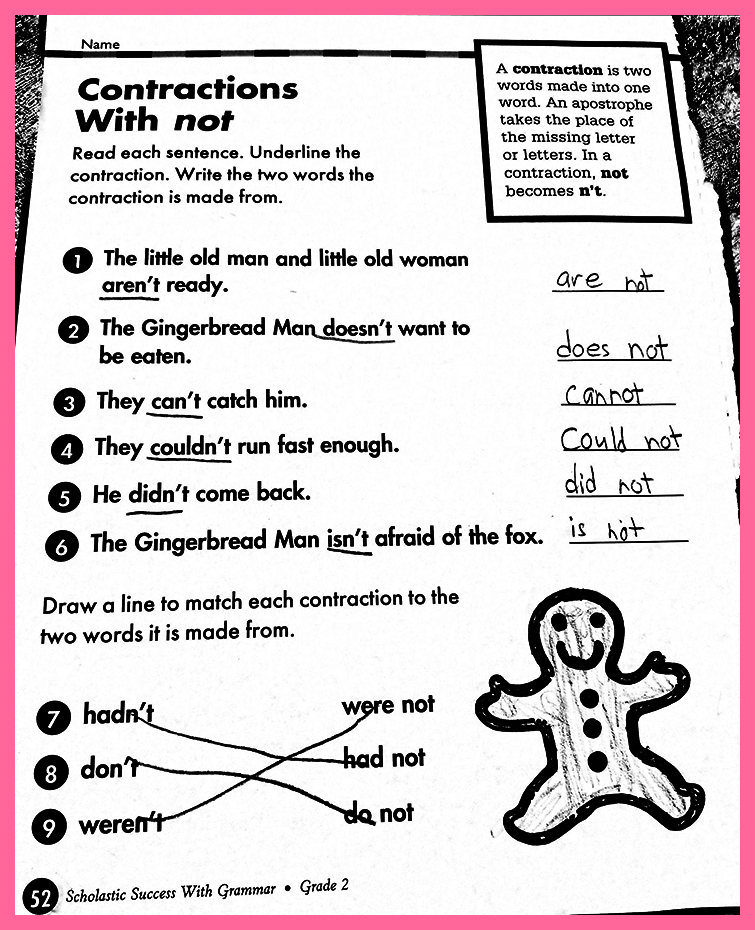 Name
Contractions
With not
A contraction is two
words made into one
word. An apostrophe
takes the place of
the missing letter
or letters. In a
contraction, not
becomes n't.
Read each sentence. Underline the
contraction. Write the two words the
contraction is made from.
1 The little old man and little old woman
aren't ready.
are not
2 The Gingerbread Man doesn't want to
be eaten.
does not
3 They can't catch him.
cannot
4 They couldn't run fast enough.
Could not
5 He didn't come back.
did not
6 The Gingerbread Man isn't afraid of the fox.
is not
Draw a line to match each contraction to the
two words it is made from.
7 hadn't were not
8 don't had not
9 weren't do not
52 Scholastic Success With Grammar • Grade 2